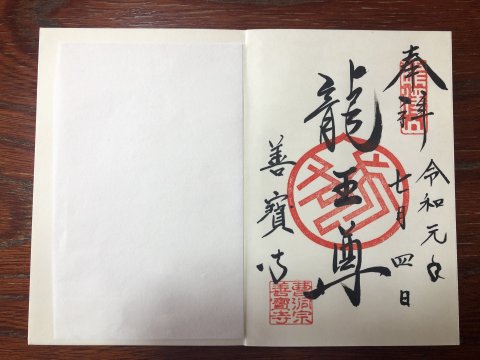 奉拝
令和元年
七月四日
龍王尊
善寳寺
曹洞宗
善寳寺